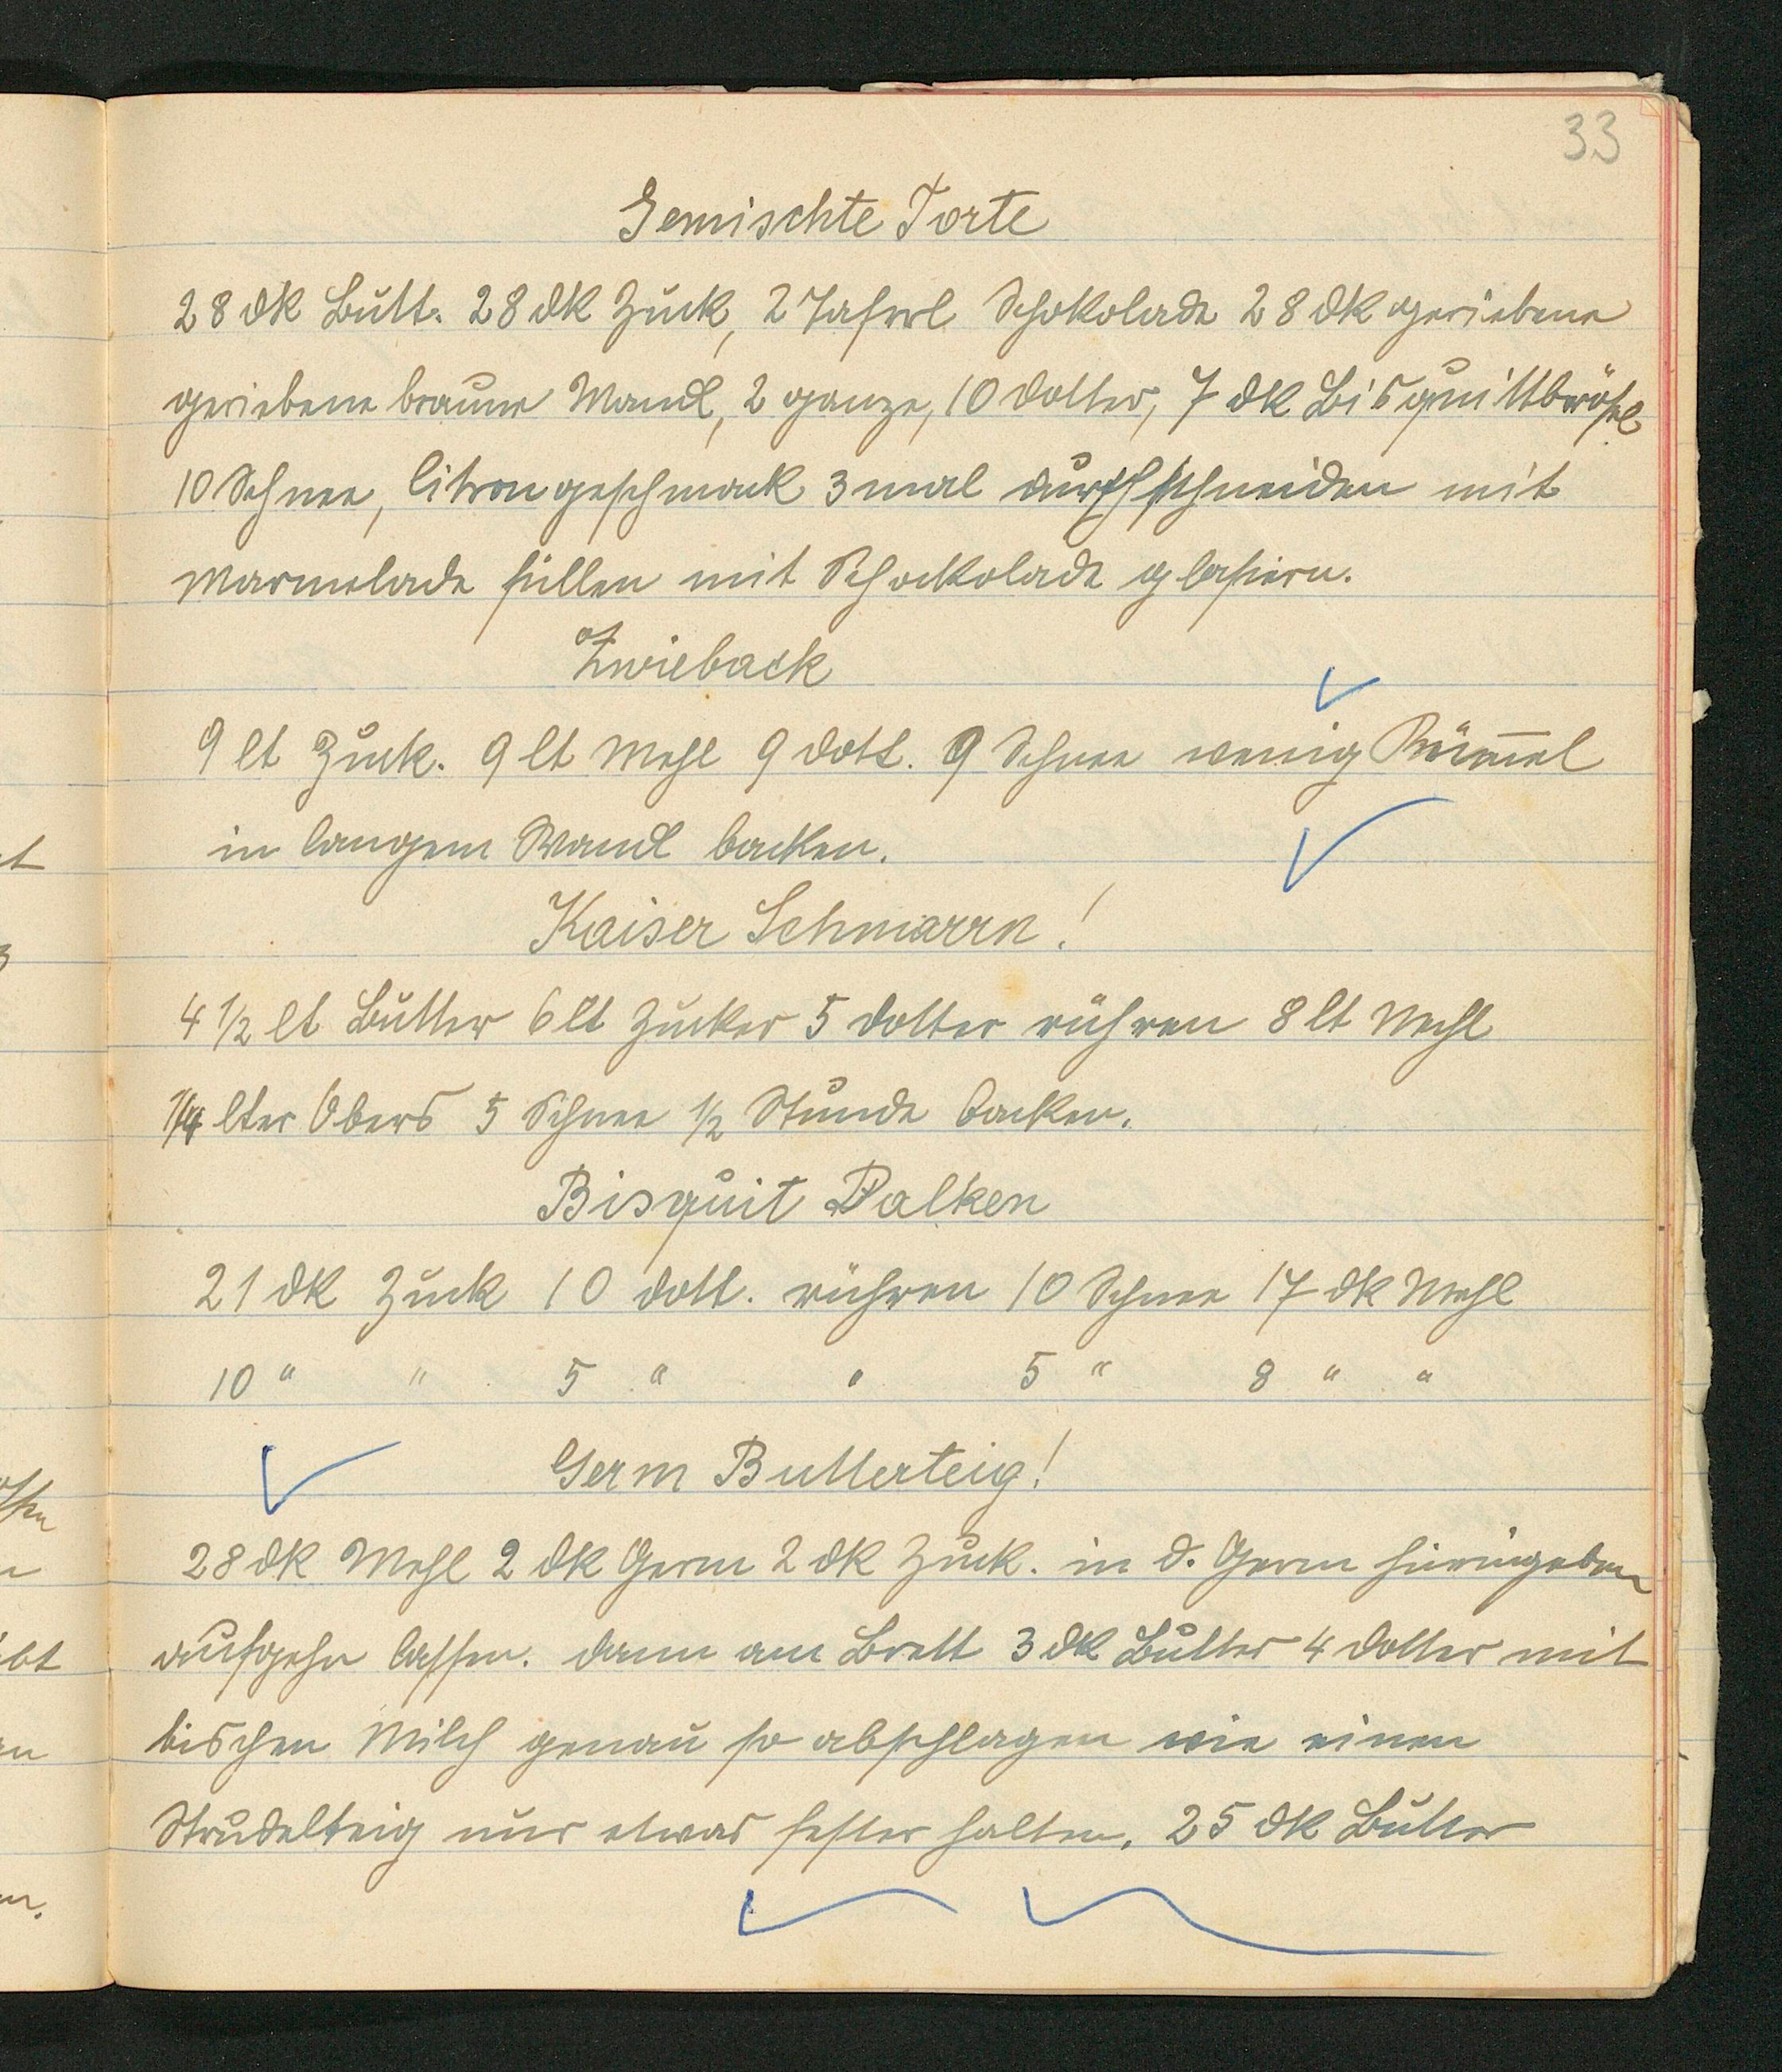 33
Gemischte Torte
28 dk Butt. 28 dk Zuck, 2 Taferl Schokolade 28 dk geriebene
geriebene braune Mandl, 2 ganze, 10 Dotter, 7 dk Bisquittbrösel
10 Schnee, Citrongeschmack 3 mal durchschneiden mit
Marmelade füllen mit Schockolade glasieren.
Zwieback
9 lt Zuck. 9 lt Mehl 9 Dott. 9 Schnee wenig Kümmel
in langem Wandl backen.
Kaiser Schmarrn!
4 1/2 lt Butter 6 lt Zucker 5 Dotter rühren 8 lt Mehl
1/4 lter Obers 5 Schnee 1/2 Stunde backen.
Bisquit Dalken
21 dk Zuck 10 Dott. rühren 10 Schnee 17 dk Mehl
10 " " 5 " " 5 " 8 " "
Germ Butterteig!
28 dk Mehl 2 dk Germ 2 dk Zuck. in d. Germ hineingeben
aufgehn lassen. dann am Brett 3 dk Butter 4 Dotter mit
bischen Milch genau so abschlagen wie einen
Strudelteig nur etwas fester halten. 25 dk Butter